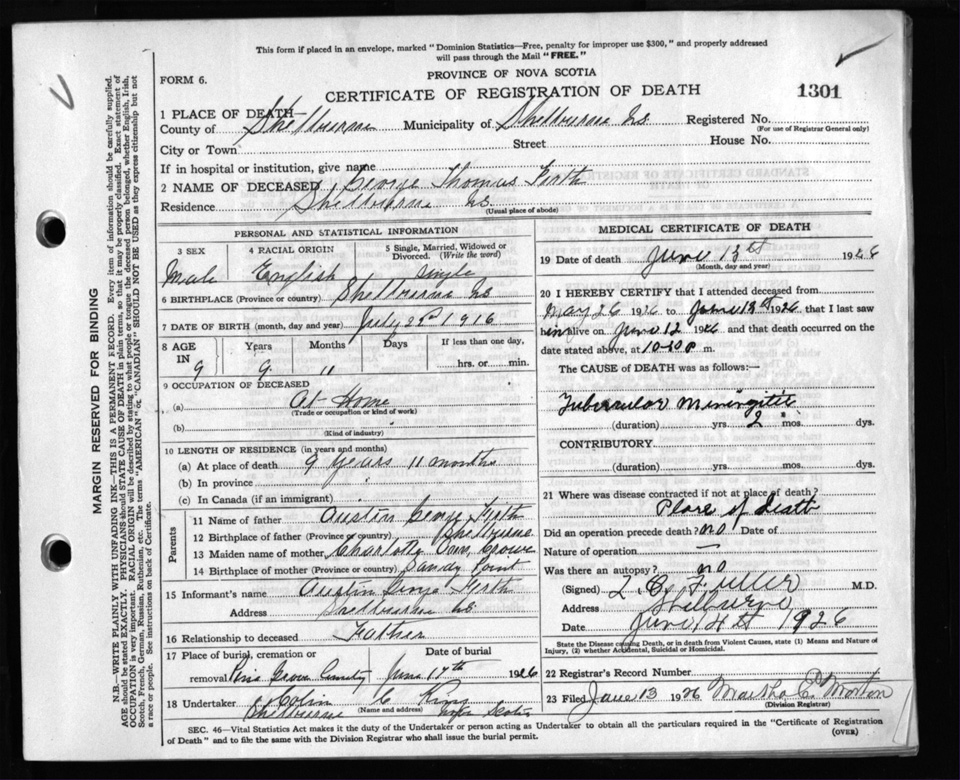 This form if placed in an envelope, marked "Dominion Statistics—Free, penalty for improper use $300," and properly addressed
will pass through the Mail "FREE."
FORM 6.
PROVINCE OF NOVA SCOTIA
CERTIFICATE OF REGISTRATION OF DEATH
1301
1 PLACE OF DEATH—
County of Shelburne Municipality of Shelburne NS Registered No.
(For use of Registrar General only)
City or Town Street House No.
If in hospital or institution, give name
2 NAME OF DECEASED George Thomas Firth
Residence Shelburne NS
(Usual place of abode)
PERSONAL AND STATISTICAL INFORMATION
3 SEX 4 RACIAL ORIGIN 5 Single, Married, Widowed or Divorced. (Write the word)
Male English Single
6 BIRTHPLACE (Province or country) Shelburne NS
7 DATE OF BIRTH (month, day and year) July 23rd 1916
8 AGE IN Years Months Days If less than one day,
9 9 11 hrs. or min.
9 OCCUPATION OF DECEASED
(a) At Home
(Trade or occupation or kind of work)
(b)
(Kind of industry)
10 LENGTH OF RESIDENCE (in years and months)
(a) At place of death 9 years 11 months
(b) In province
(c) In Canada (if an immigrant)
Parents
11 Name of father Austin George Firth
12 Birthplace of father (Province or country) Shelburne
13 Maiden name of mother Charlotte Crowe
14 Birthplace of mother (Province or country) Sandy Point
15 Informant's name Austin George Firth
Address Shelburne NS
16 Relationship to deceased Father
17 Place of burial, cremation or removal Date of burial
Pine Grove Cemetery June 1926
18 Undertaker Colin C King
(Name and address)
Shelburne Nova Scotia
MEDICAL CERTIFICATE OF DEATH
19 Date of death June 13th 1926
(Month, day and year)
20 I HEREBY CERTIFY that I attended deceased from
May 26 1926 to June 13th 1926 that I last saw
him alive on June 12 1926 and that death occurred on
date stated above, at 10-10 P m.
The CAUSE OF DEATH was as follows:—
Tubercular Meningitis
(duration) yrs. 2 mos. dys.
CONTRIBUTORY.
(duration) yrs. mos. dys.
21 Where was disease contracted if not at place of death?
Place of Death
Did an operation precede death? no Date of
Nature of operation —
Was there an autopsy? no
(Signed) L. O. Fuller M.D.
Address Shelburne
Date June 14th 1926
State the Disease causing Death, or in death from Violent Causes, state (1) Means and Nature of
Injury, (2) whether Accidental, Suicidal or Homicidal.
22 Registrar's Record Number
23 Filed June 13 1926 Martha C. Morton
(Division Registrar)
SEC. 46—Vital Statistics Act makes it the duty of the Undertaker or person acting as Undertaker to obtain all the particulars required in the "Certificate of Registration
of Death" and to file the same with the Division Registrar who shall issue the burial permit.
(OVER)
MARGIN RESERVED FOR BINDING
N.B.—WRITE PLAINLY WITH UNFADING INK—THIS IS A PERMANENT RECORD. Every item of information should be carefully supplied.
AGE should be stated EXACTLY. PHYSICIANS should STATE CAUSE OF DEATH in plain terms, so that it may be properly classified. Exact statement of
OCCUPATION is very important. RACIAL ORIGIN will be described by stating to what people or tongue the deceased person belonged, whether English, Irish,
Scotch, French, German, Russian, Ruthenian, etc. The terms "AMERICAN" or "CANADIAN" SHOULD NOT BE USED as they express citizenship but not
a race or people. See instructions on back of Certificate.